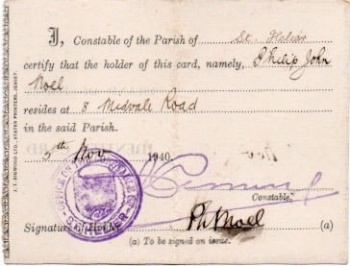 I, Constable of the Parish of St. Helier
certify that the holder of this card, namely, Philip John
Noel
resides at 8 Midvale Road
in the said Parish.
5th Nov 1940.
Constable.
Signature of Holder Ph Noel (a)
(a) To be signed on issue.